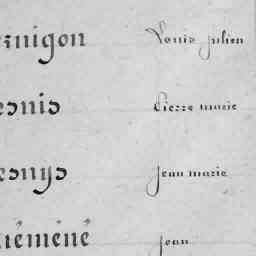 rnigon Louis Julien
esnis Pierre marie
esnys Jean marie
iéméné Jean